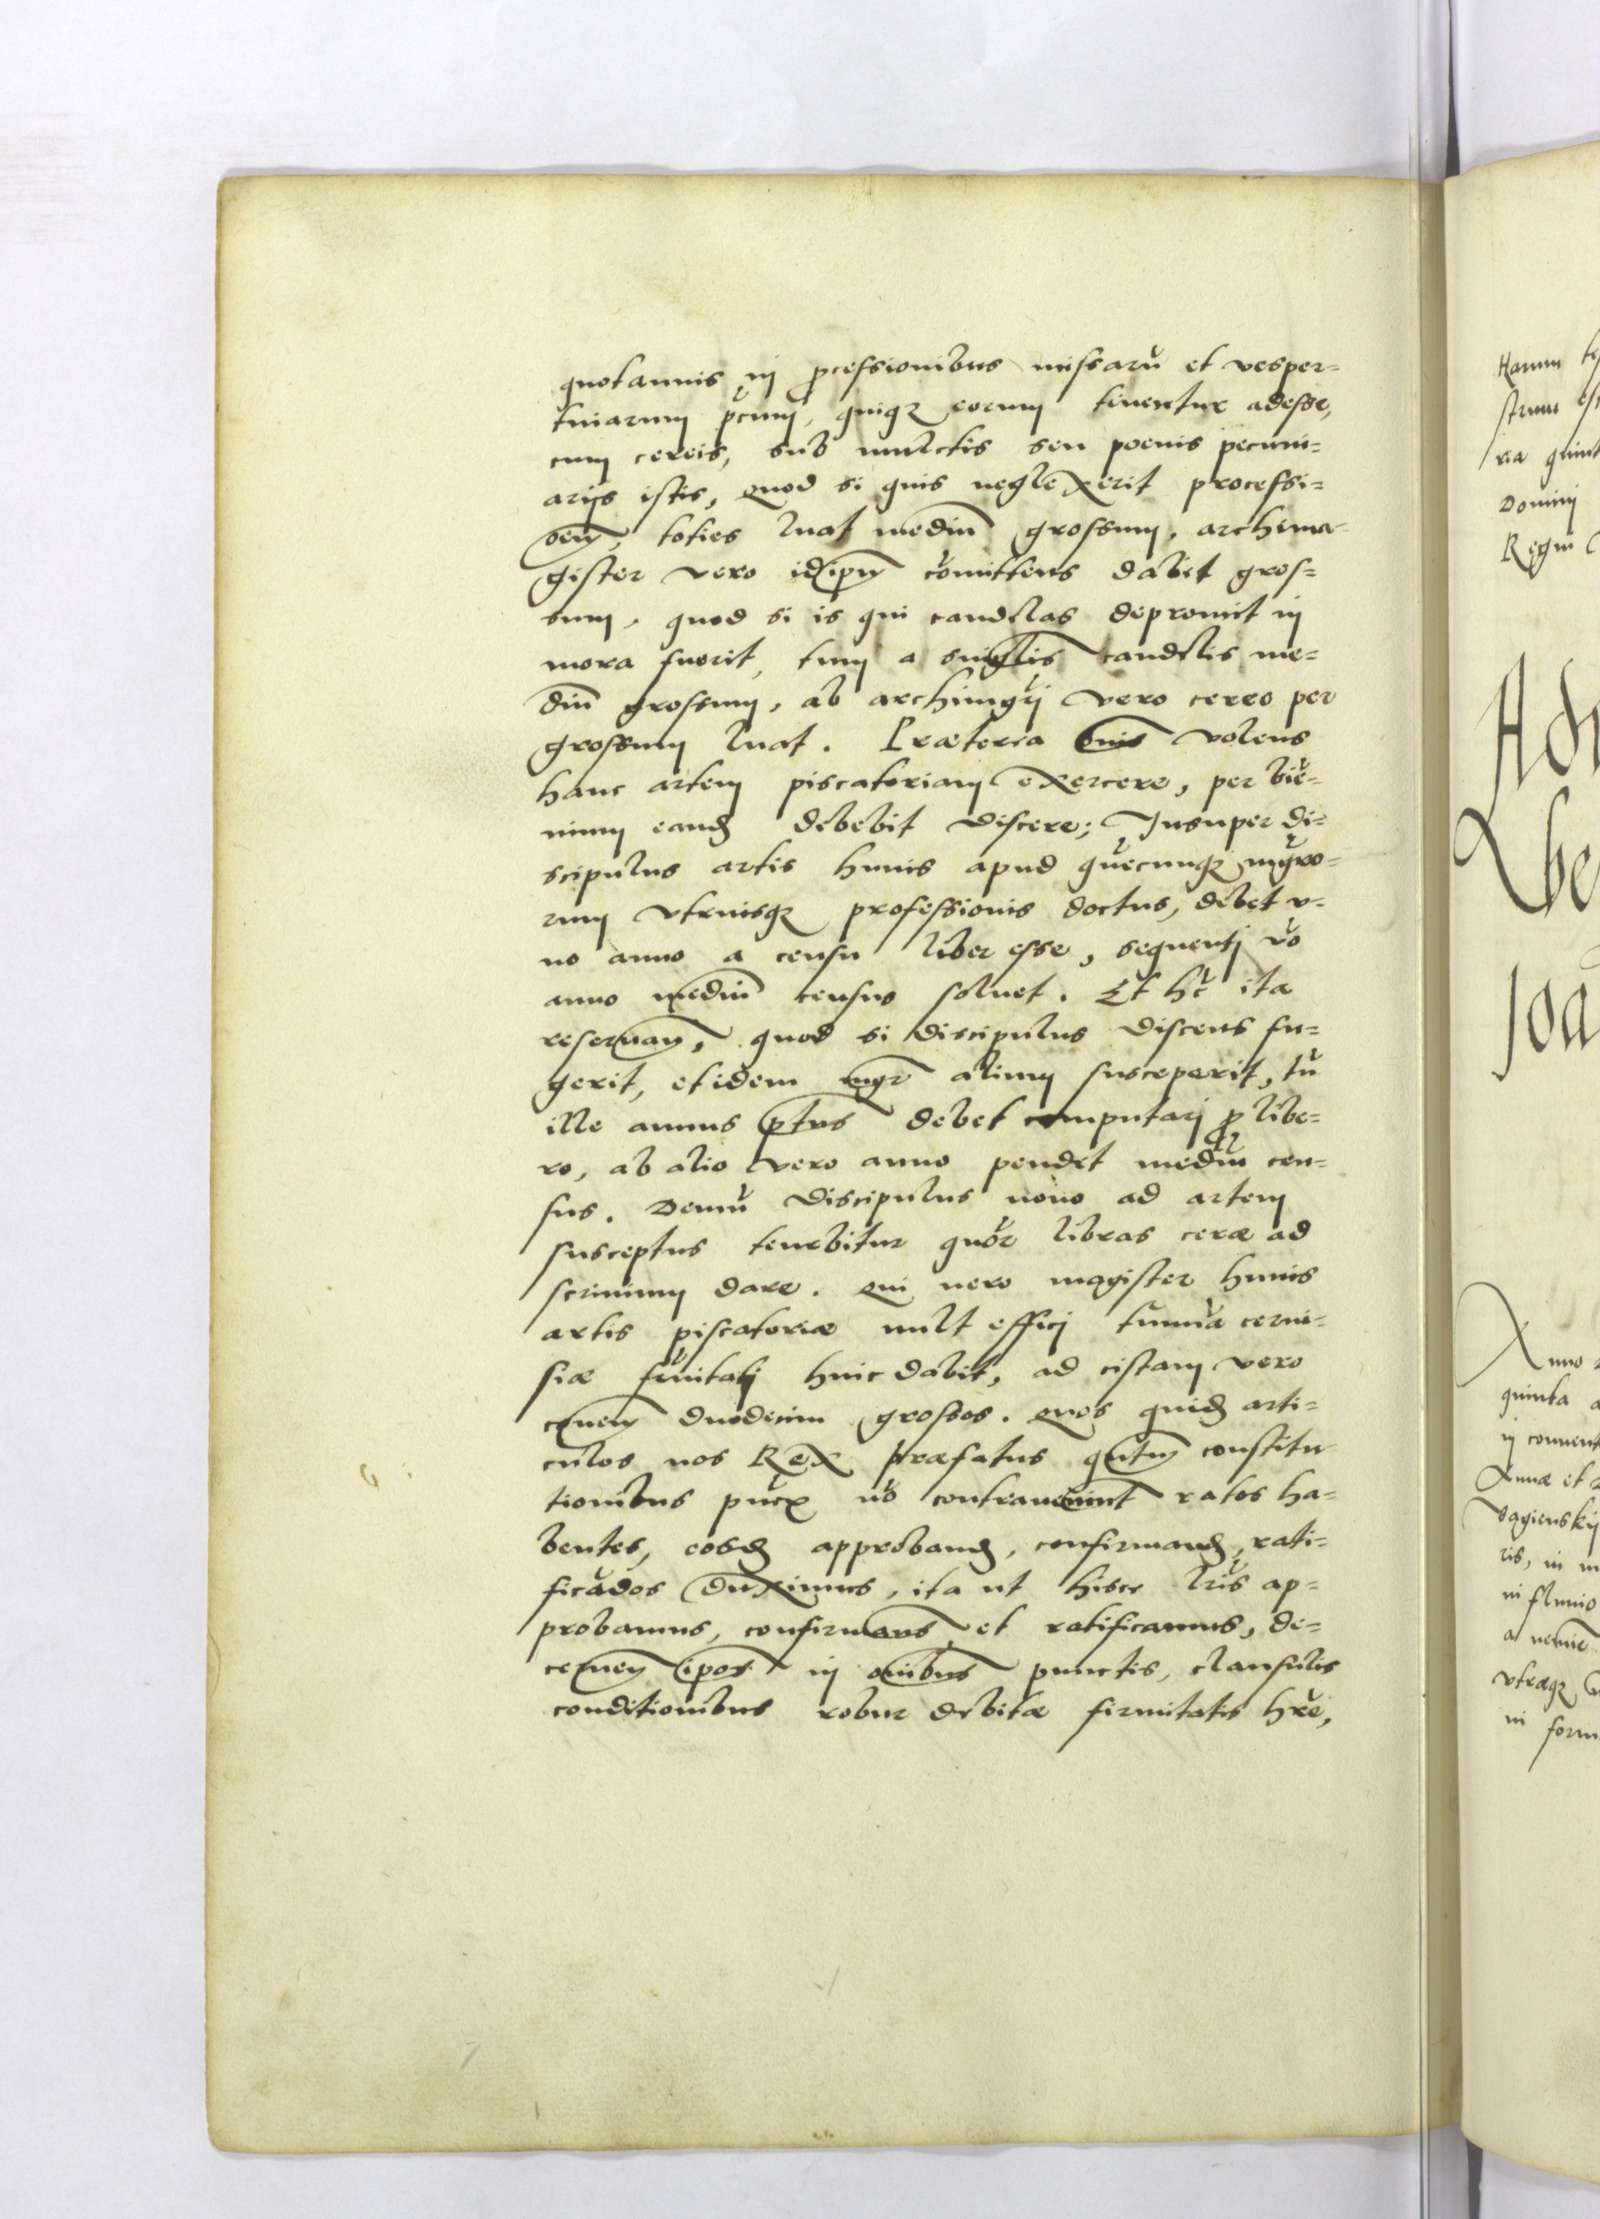 quotannis in pcessionibus missarũ et vesper=
tinarum pcum, quiqȝ eorum tenentur adesse,
cum cereis, sub mulctis seu poenis pecuni=
arijs istis, quod si quis neglexerit processi=
oem, toties luat mediũ grossum, archima=
gister vero idipm comittens dabit gros=
sum, quod si is qui candelas depromit in
mora fuerit, tum a singlis candelis me=
diũ grossum, ab archimgrj vero cereo per
grossum luat. Praeterea omis volens
hanc artem piscatoriam exercere, per biẽ=
nium eand debebit discere; Insuper di=
scipulus artis huius apud quẽcunqȝ mgro=
rum vtriusqȝ professionis doctus, debet v=
no anno a censu liber esse, sequentj vo
anno mediũ census soluet. Et hc ita
reseruam, quod si discipulus discens fu=
gerit, et idem mgr alium susceperit, tũ
ille annus ptus debet computarj p libe=
ro, ab alio vero anno pendet mediũ cen=
sus. Demũ discipulus nouo ad artem
susceptus tenebitur quor libras cerae ad
scrinium dare. Qui uero magister huius
artis piscatoriae uult efficj tunnã cerui=
siae frnitatj huic dabit, ad cistam vero
coem duodecim grossos. Quos quid arti=
culos nos Rex praefatus qntm constitu
tionibus no contraueniunt ratos ha=
bentes, eosd approband, confirmand, rati=
ficãdos duximus, ita ut hisce lris ap=
probamus, confirmams et ratificamus, de=
cernen ipos in omibus punctis, clausulis
conditionibus robur debitae firmitatis hre,
Harum
strum
ria
Domini
Regni
Joa
Anno
quinta
in conuent
Annae et
vagienskij
ris, in
in fluuio
vtraqȝ
in form